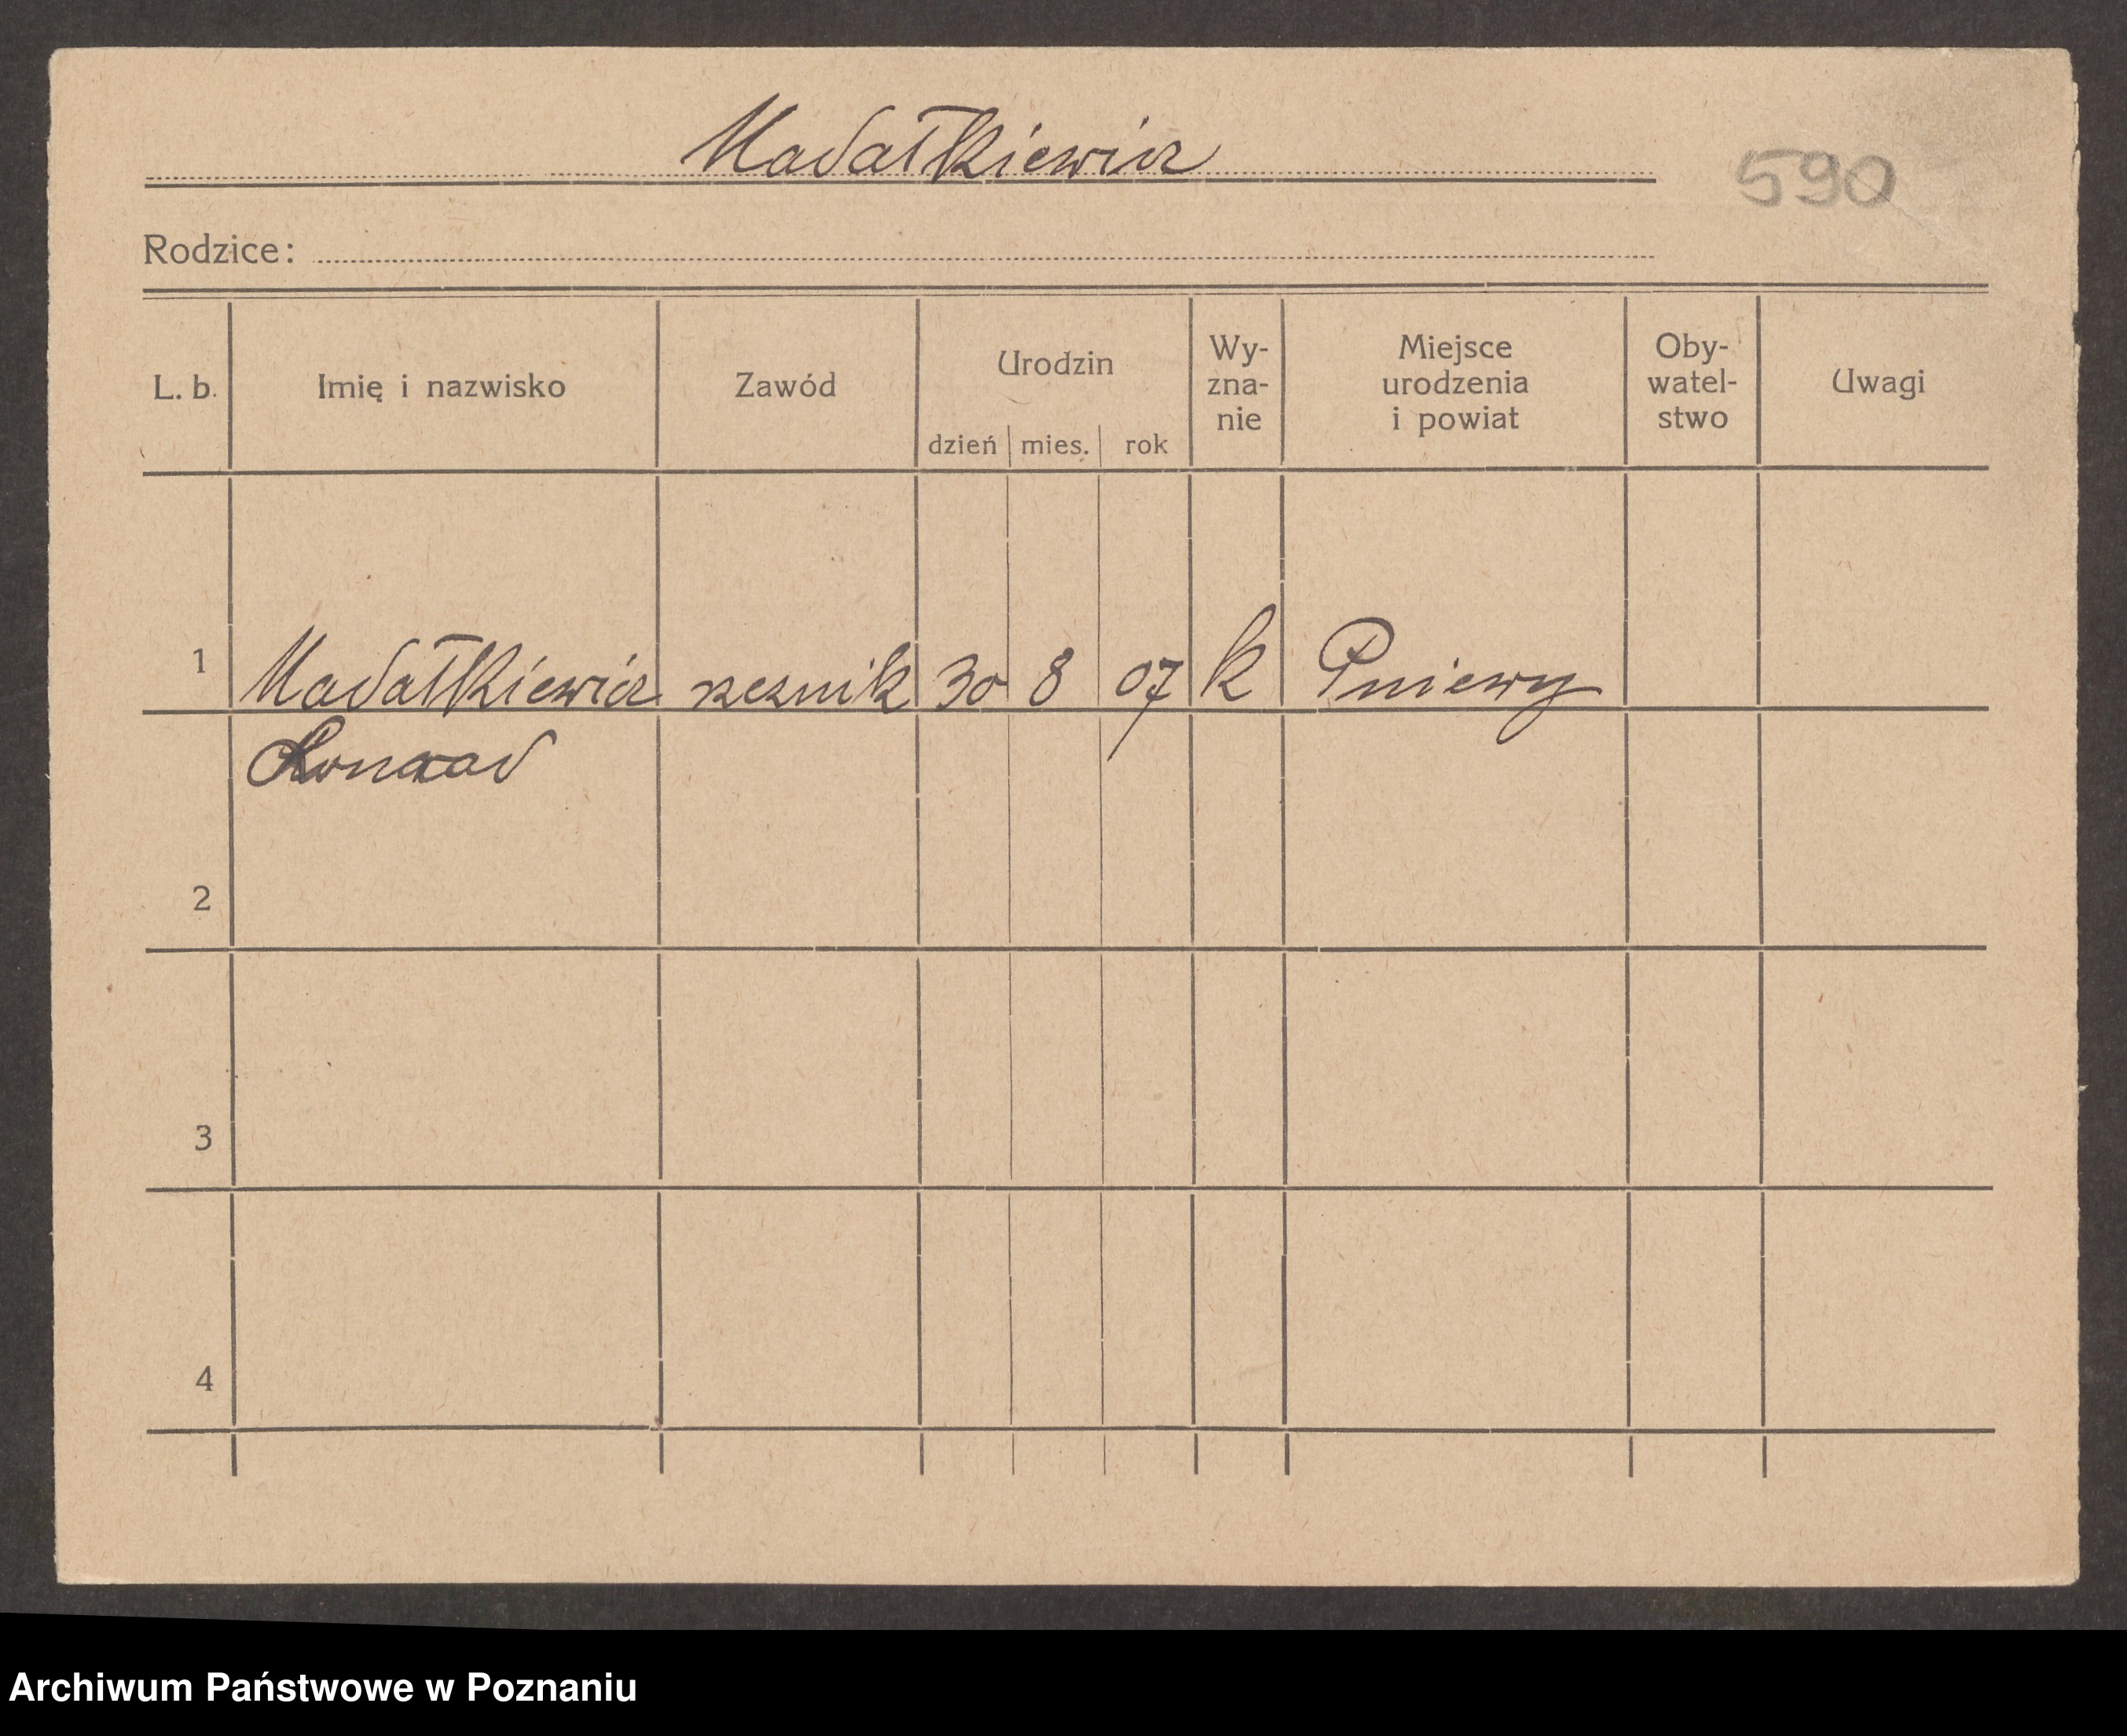 Madałkiewicz
590
Rodzice:
L. b. Imię i nazwisko Zawód Urodzin dzień mies. rok Wy-zna-nie Miejsce urodzenia i powiat Oby-watel-stwo Uwagi
1 Madałkiewicz rzeznik 30 8 07 k Pniewy
Konrad
2
3
4
Archiwum Państwowe w Poznaniu